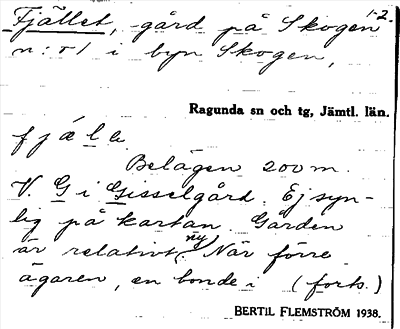 1-2.
Fjället, gård på Skogen
n:r 1 i byn Skogen,
Ragunda sn och tg, Jämtl. län.
fjæle
Belägen 200 m.
V. G i Gisselgård. Ej syn-
lig på kartan. Gården
är relativt ny. När förre
ägaren, en bonde i (forts.)
BERTIL FLEMSTRÖM 1938.